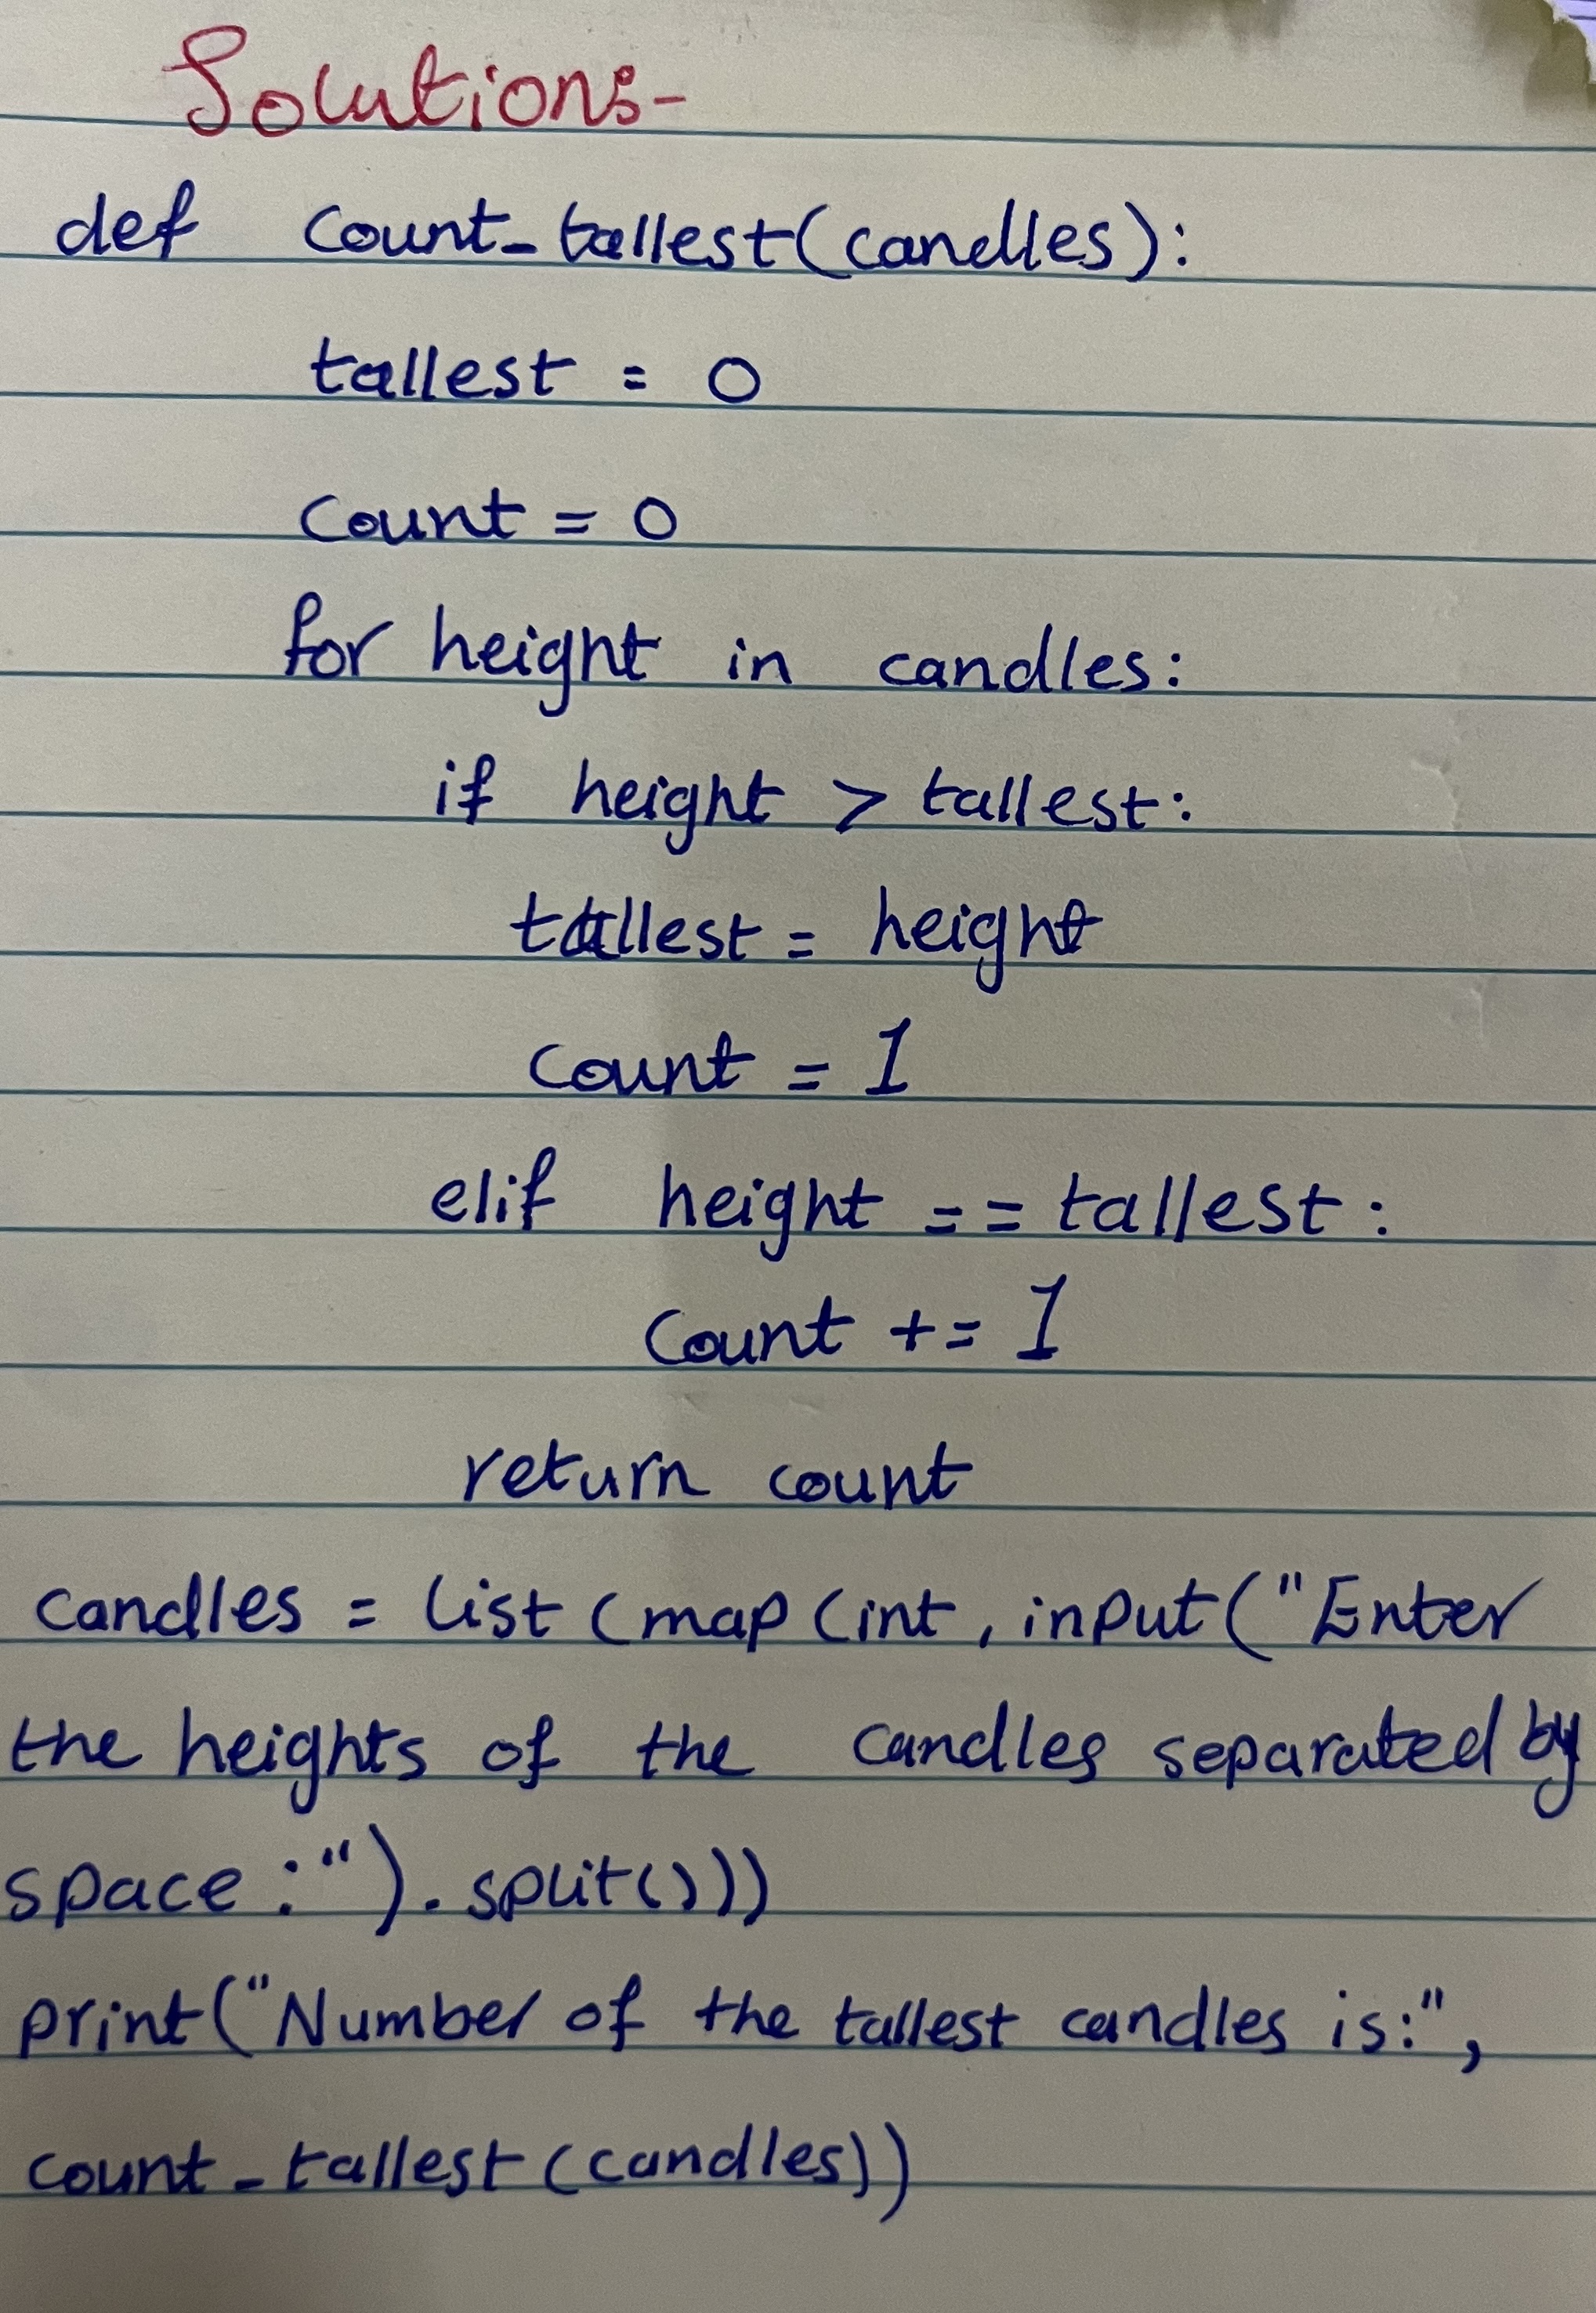 Solutions-
def count_tallest(candles):
tallest = 0
count = 0
for height in candles:
if height > tallest:
tallest = height
count = 1
elif height == tallest:
count += 1
return count
candles = list(map(int, input("Enter
the heights of the candles separated by
space:").split()))
print("Number of the tallest candles is:",
count_tallest(candles))